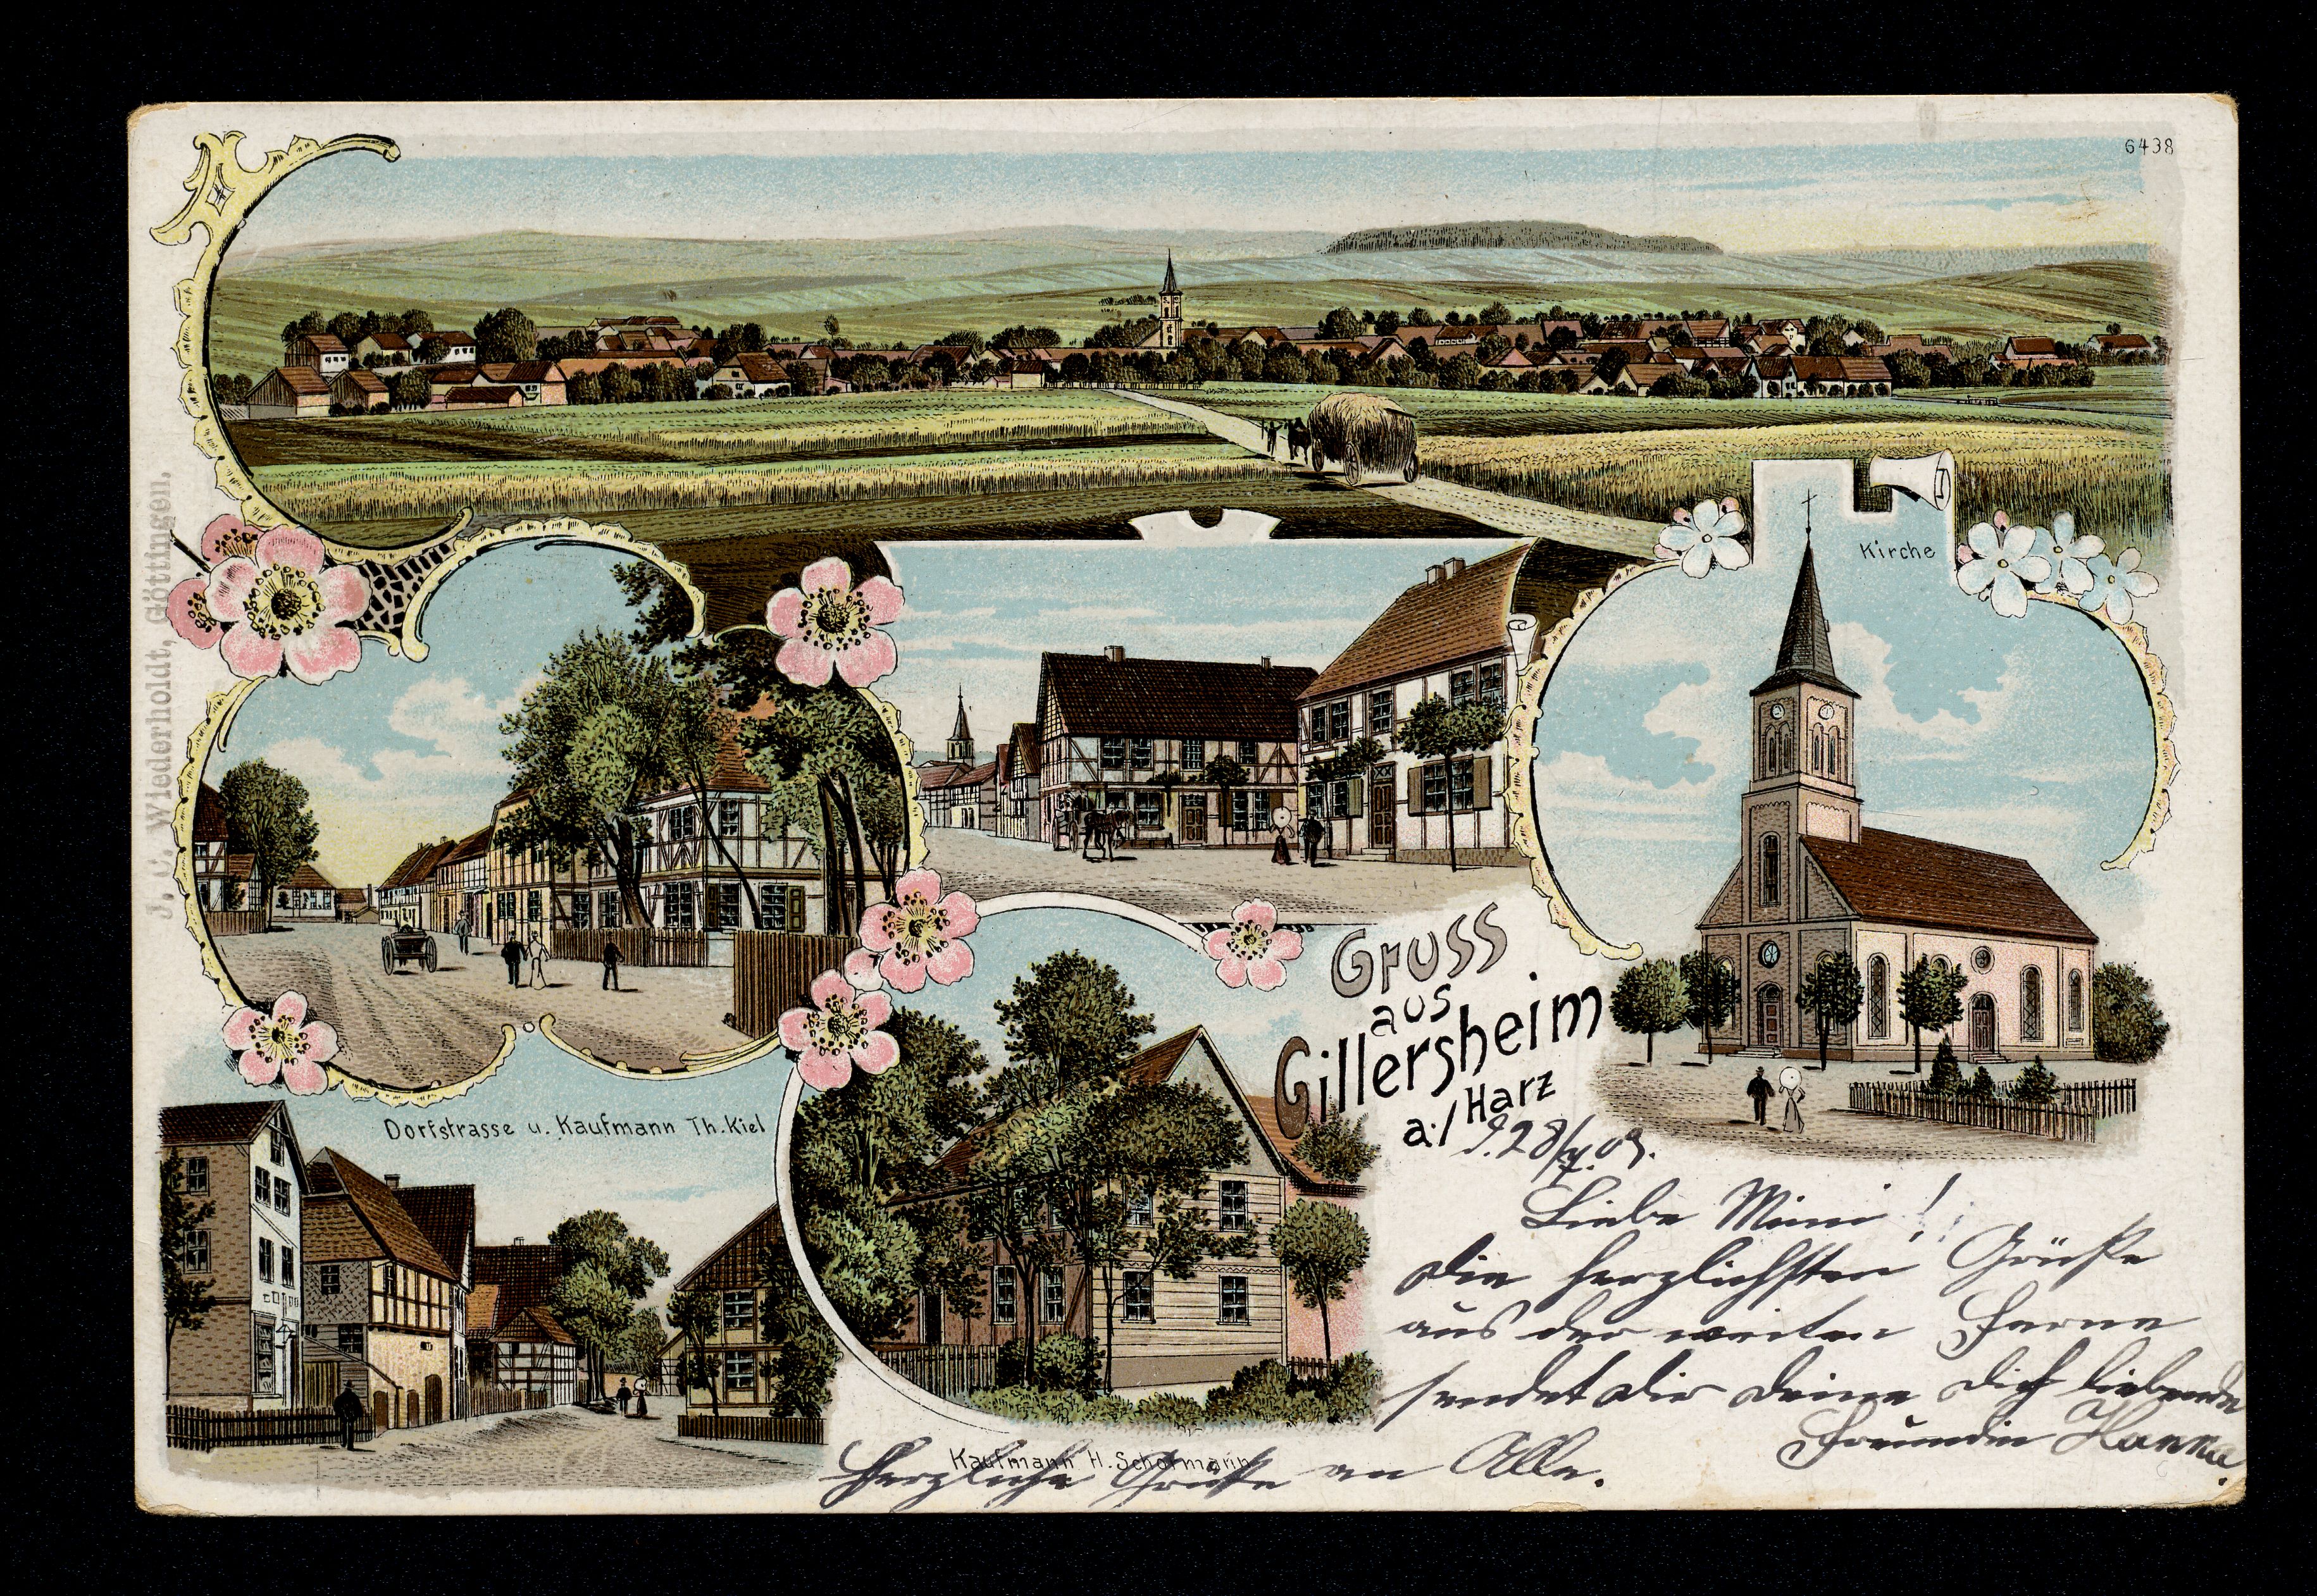 6438
J. C. Wiederholdt, Göttingen.
Kirche
Gruss
aus
Gillersheim
a./Harz
Dorfstrasse u. Kaufmann Th. Kiel
Kaufmann H. Schormann
Liebe Mimi!
die herzlichsten Grüße
aus der weiten Ferne
sendet dir deine dich liebende
Freundin Hanna.
Herzliche Grüße an Alle.